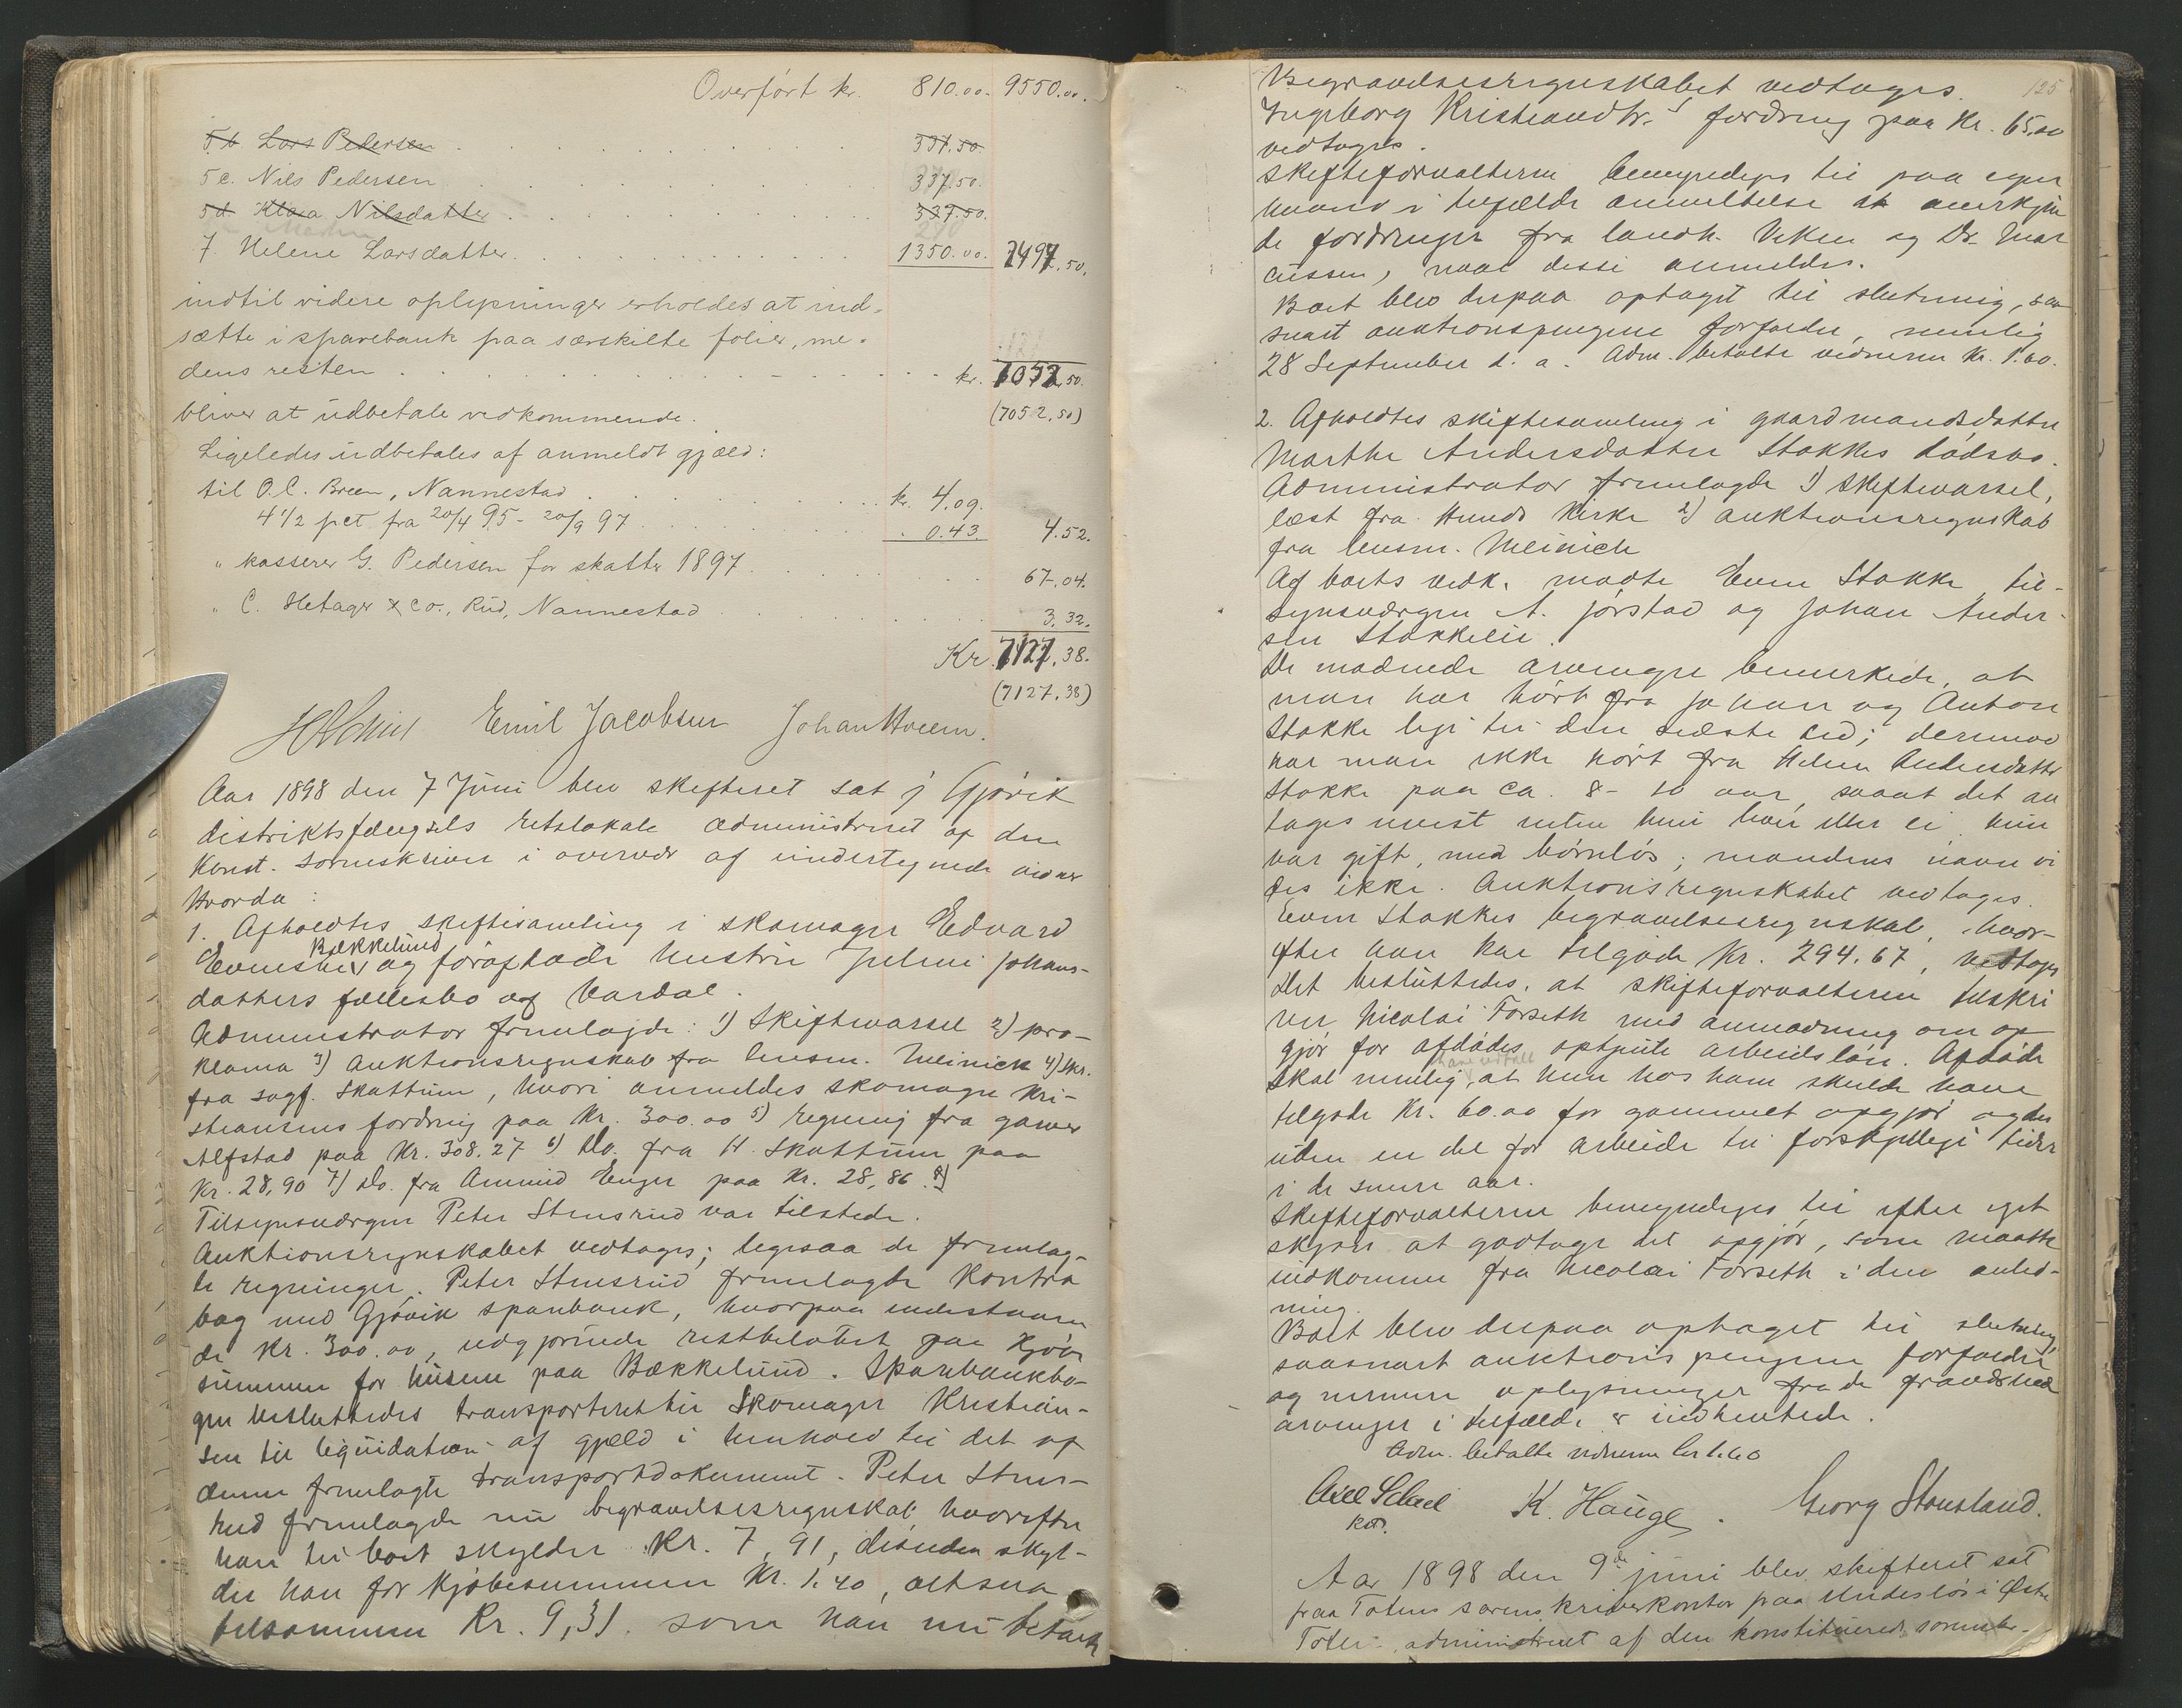 Overført kr. 810.00. 9550.00.
5.b Lars Pedersen . . . 337.50.
5c. Nils Pedersen . . . 337.50.
5d Klara Nilsdatter . . . 337.50.
7. Helene Larsdatter . . . 1350.00. 2497.50.
indtil videre oplysninger erholdes at ind-
sætte i sparebank paa særskilte folier, me-
dens resten . . . kr. 7052,50.
bliver at udbetale vedkommende. (7052,50)
Ligeledes udbetales af anmeldt gjæld:
til O.C. Breen, Nannestad . . . kr. 4.09.
4 1/2 pct fra 20/4 95 - 20/9 97 . . . 0.43. 4.52.
" kasserer G. Pedersen for skatter 1897 . . . 67.04.
" C. Hetager & Co., Rud, Nannestad . . . 3.32.
Kr. 7127,38.
(7127,38)
Emil Jacobsen Johan Hveem.
Aar 1898 den 7 Juni blev skifteret sat i Gjøvik
distriktsfængsels retslokale administreret af den
konst. sorenskriver i overvær af undertegnede vidner
Hvorda:
1. Afholdtes skiftesamling i skomager Edvard
Bækkelund
Evensens og forafdøde hustru Juline Johans-
datters fællesbo af Vardal.
Administrator fremlagde: 1) Skiftevarsel 2) pro-
klama 3) Auktionsregnskab fra lensm. Meinich 4) skr.
fra sagf. Skattum, hvori anmeldes skomager Kri-
stiansens fordring paa Kr. 300.00 5) regning fra garver
Alfstad paa Kr. 308.27 6) Do. fra H. Skattum paa
Kr. 28,90 7) Do. fra Amund Enger paa Kr. 28,86. 8)
Tilsynsværgen Peter Stensrud var tilstede.
Auktionsregnskabet vedtages; ligesaa de fremlag-
te regninger. Peter Stensrud fremlagde Kontra
bog med Gjøvik sparebank, hvorpaa indestaaen
de Kr. 300.00, udgjørende restbeløbet paa Kjøbe
summen for husene paa Bækkelund. Sparebankbo-
gen besluttedes transporteret til Skomager Kristian-
sen til liquidation af gjæld i henhold til det af
denne fremlagte transportdokument. Peter Stens-
rud fremlagde nu begravelsesregnskab, hvorefter
han til boet skylder Kr. 7,91, desuden skyl-
der han for Kjøbesummen Kr. 1.40, altsaa
tilsammen Kr. 9,31. som han nu betalte
125
Begravelsesregnskabet vedtages.
Ingeborg Kristiansdtr.s fordring paa Kr. 65,00
vedtages.
Skifteforvalteren bemyndiges til paa egen
haand i tilfælde anmeldelse at anerkjen
de fordringer fra landh. Viken og Dr. Mar
cussen, naar disse anmeldes.
Boet blev derpaa optaget til slutning, saa
snart auktionspengene forfalder, nemlig
28 September d. a. Adm. betalte vidnerne Kr. 1.60.
2. Afholdtes skiftesamling i gaardmandsdatter
Marthe Andersdatter Stokkes dødsbo.
Administrator fremlagde 1) Skiftevarsel,
læst fra Hunds Kirke 2) auktionsregnskab
fra lensm. Meinich
Af boets vedk. mødte Even Stokke, til-
synsværgen A. Jørstad og Johan Ander-
sen Stokkelie.
De mødende arvinger bemerkede, at
man har hørt fra Johan og Anton
Stokke lige til den sidste tid; derimod
har man ikke hørt fra Helene Andersdatter
Stokke paa ca. 8 - 10 aar, saaat det an
tages uvist enten hun lever eller ei. Hun
var gift, med børnløs; mandens navn vi
des ikke. Auktionsregnskabet vedtages.
Even Stokkes begravelsesregnskab, hvor-
efter han har tilgode Kr. 294.67, vedtages
Det besluttedes, at skifteforvalteren tilskri
ver Nicolai Forseth med anmodning om op
gjør for afdødes optjente arbeidsløn. Afdøde
skal nemlig, at hun hos ham skulde have
tilgode Kr. 60.00 for gammelt opgjør og des
uden en del for arbeide til forskjellige tider
i de senere aar.
Skifteforvalteren bemyndiges til efter eget
skjøn at godtage det opgjør, som maatte
indkomme fra Nicolai Forseth i den anled-
ning.
Boet blev derpaa optaget til slutning,
saasnart auktionspengene forfalder
og nermere oplysninger fra de fraværende
arvinger i tilfælde er indhentede.
Adm. betalte vidnerne kr 1.60
Axel Scheel K. Hauge. Georg Stousland.
kst.
Aar 1898 den 9de juni blev skifteret sat
paa Totens sorenskriverkontor paa Hndesløs i Østre
Toten, administreret af den konstituerede sorenskr-